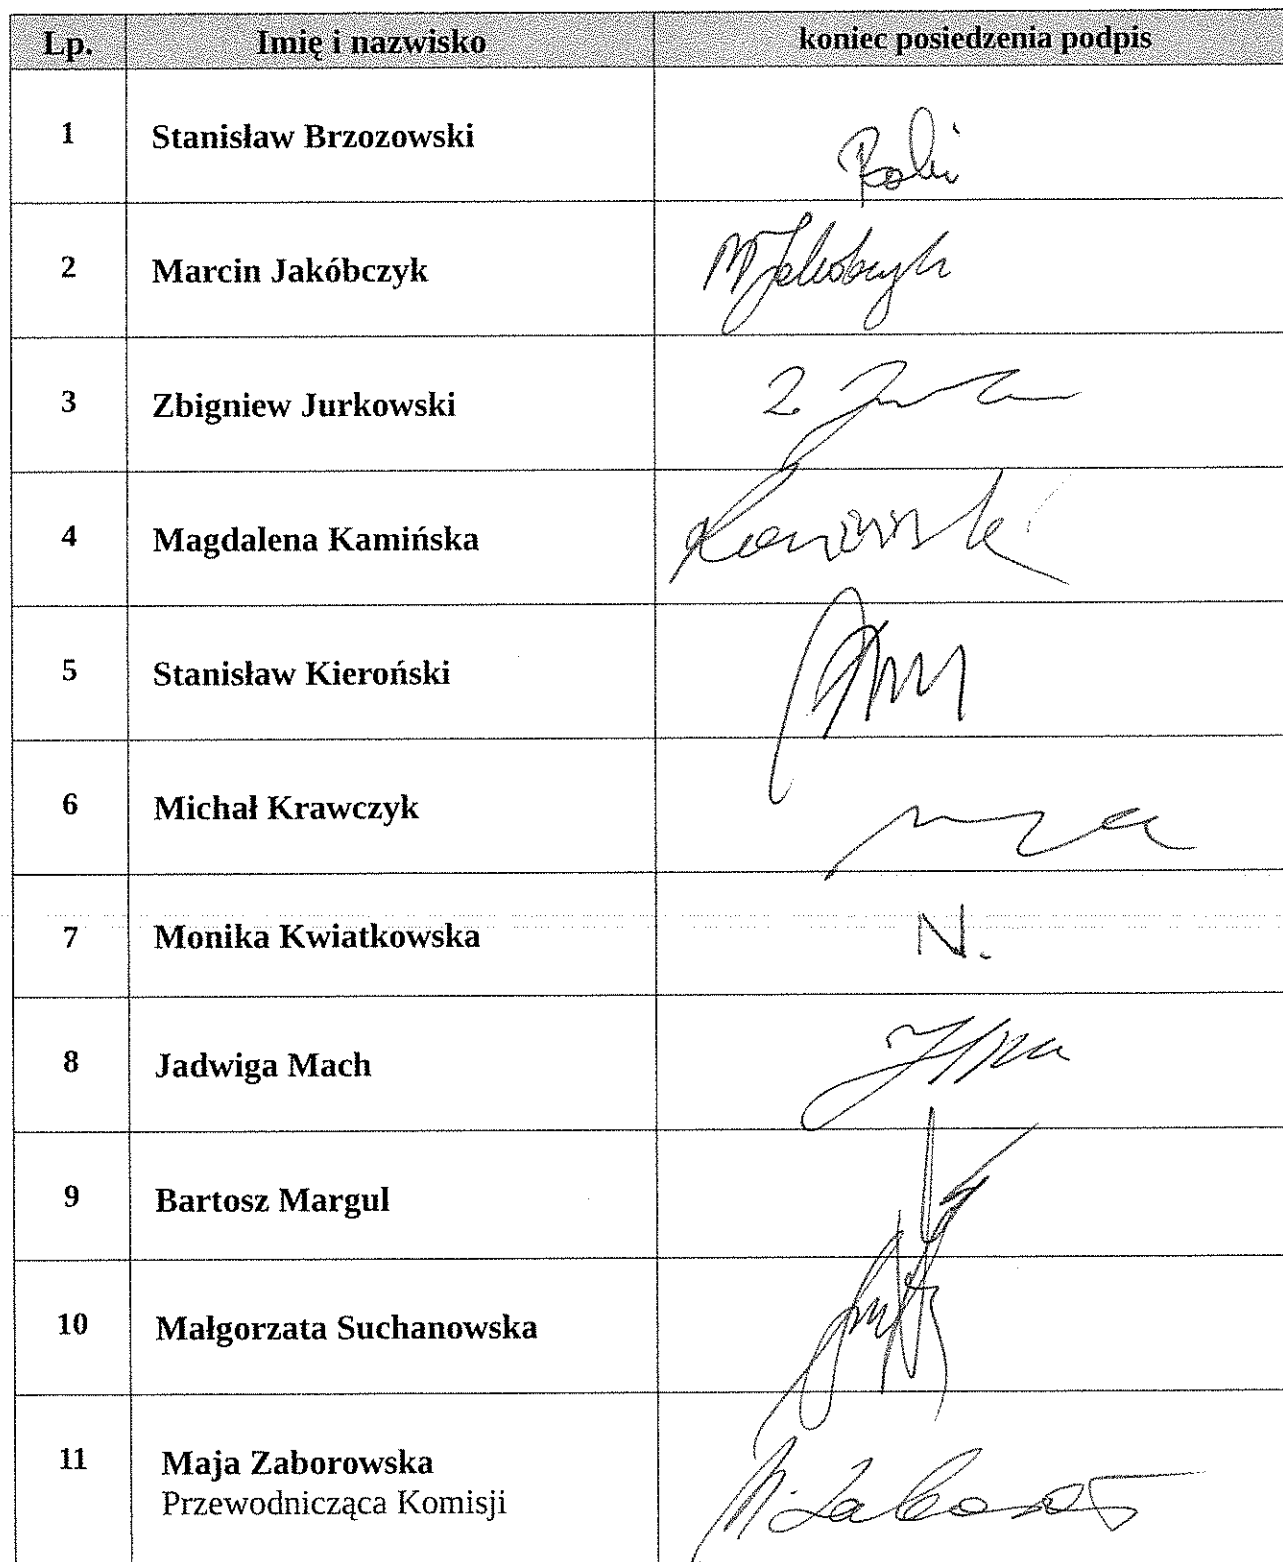 Lp. Imię i nazwisko koniec posiedzenia podpis
1 Stanisław Brzozowski
2 Marcin Jakóbczyk M Jakóbczyk
3 Zbigniew Jurkowski
4 Magdalena Kamińska
5 Stanisław Kieroński
6 Michał Krawczyk
7 Monika Kwiatkowska N.
8 Jadwiga Mach
9 Bartosz Margul
10 Małgorzata Suchanowska
11 Maja Zaborowska
Przewodnicząca Komisji